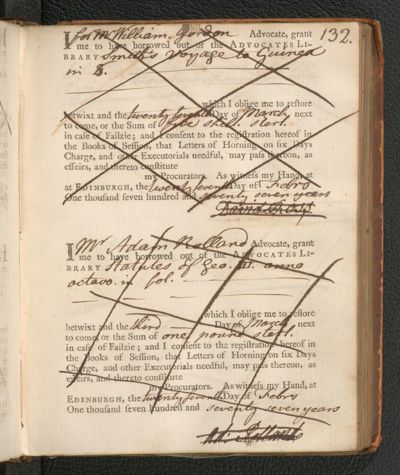 132.
I for Mr William Gordon Advocate, grant
me to have borrowed out of the ADVOCATES LI-
BRARY Smith's Voyage to Guinea
in 8.
which I oblige me to reſtore
betwixt and the twenty fourth Day of March next
to come, or the Sum of five shil. sterl.
in caſe of Failzie; and I conſent to the regiſtration hereof in
the Books of Seſſion, that Letters of Horning on ſix Days
Charge, and other Executorials needful, may paſs thereon, as
effeirs, and thereto conſtitute
my Procurators. As witneſs my Hand, at
at EDINBURGH, the twenty seventh Day of Febry
One thouſand ſeven hundred and seventy seven years
I Mr Adam Rolland Advocate, grant
me to have borrowed out of the ADVOCATES LI-
BRARY Statutes of Geo. III. anno
octavo. in fol.
which I oblige me to reſtore
betwixt and the third Day of March next
to come, or the Sum of one pound sterl.
in caſe of Failzie; and I conſent to the regiſtration hereof in
the Books of Seſſion, that Letters of Horning on ſix Days
Charge, and other Executorials needful, may paſs thereon, as
effeirs, and thereto conſtitute
my Procurators. As witneſs my Hand, at
EDINBURGH, the twenty fourth Day of Febry
One thouſand ſeven hundred and seventy seven years
Ad. Rolland